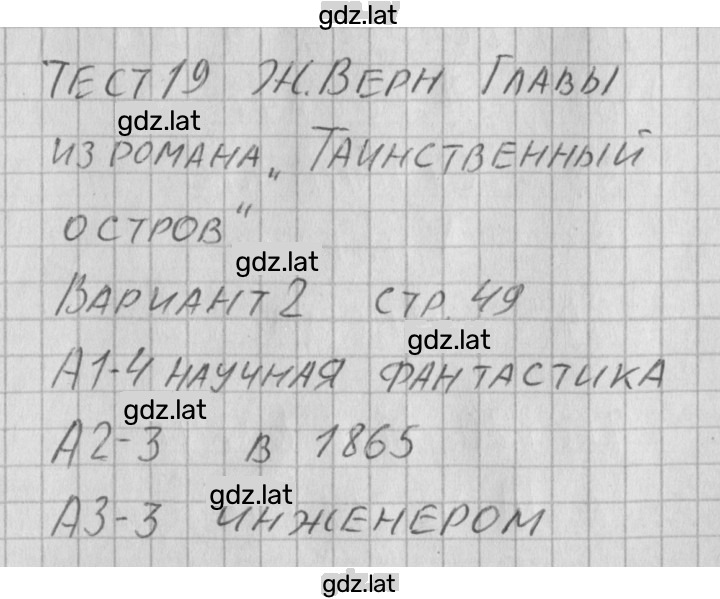 gdz.lat
ТЕСТ 19 Ж. ВЕРН ГЛАВЫ
gdz.lat
ИЗ РОМАНА „ТАИНСТВЕННЫЙ
ОСТРОВ“
gdz.lat
ВАРИАНТ 2 СТР. 49
gdz.lat
А1-4 НАУЧНАЯ ФАНТАСТИКА
gdz.lat
А2-3 В 1865
gdz.lat
А3-3 ИНЖЕНЕРОМ
gdz.lat